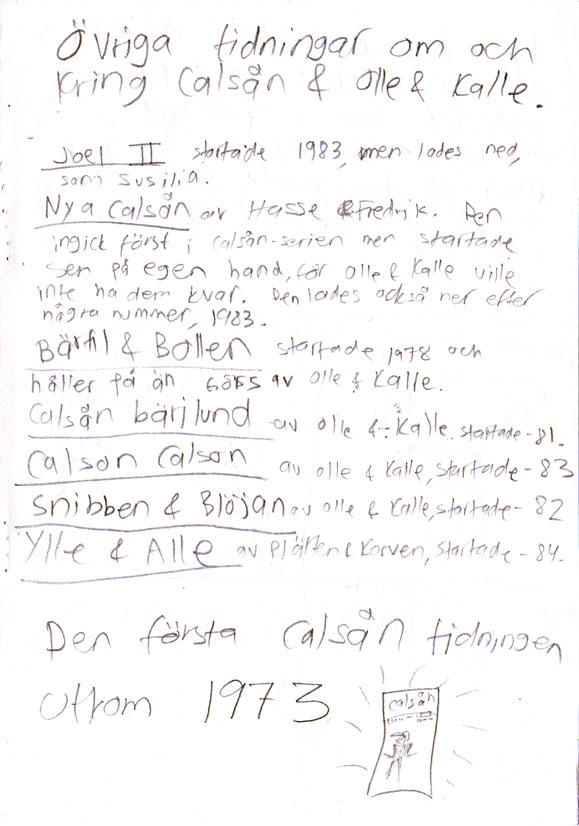 Övriga tidningar om och
kring Calsån & Olle & Kalle.
Joel II startade 1983, men lades ned,
som susilia.
Nya Calsån av Hasse & Fredrik. Den
ingick först i calsån-serien men startade
sen på egen hand, för Olle & Kalle ville
inte ha dem kvar. Den lades också ner efter
några nummer, 1983.
Bärfil & Bollen startade 1978 och
håller på än. Görs av Olle & Kalle.
Calsån bärjlund av Olle & Kalle. startade -81.
Calson Calson av Olle & Kalle, startade - 83
Snibben & Blöjan av Olle & Kalle, startade - 82
Ylle & Alle av Plätten & Korven, startade - 84.
Den första Calsån tidningen
utkom 1973
calsån